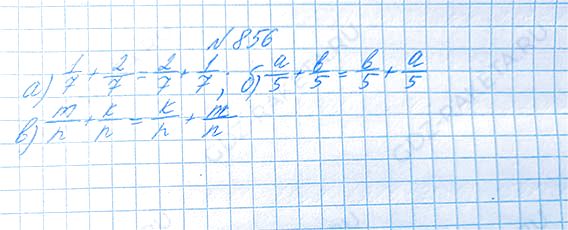 №856
а) 1/7 + 2/7 = 2/7 + 1/7; б) a/5 + b/5 = b/5 + a/5
в) m/n + k/n = k/n + m/n
GDZ-RAKETA.RU